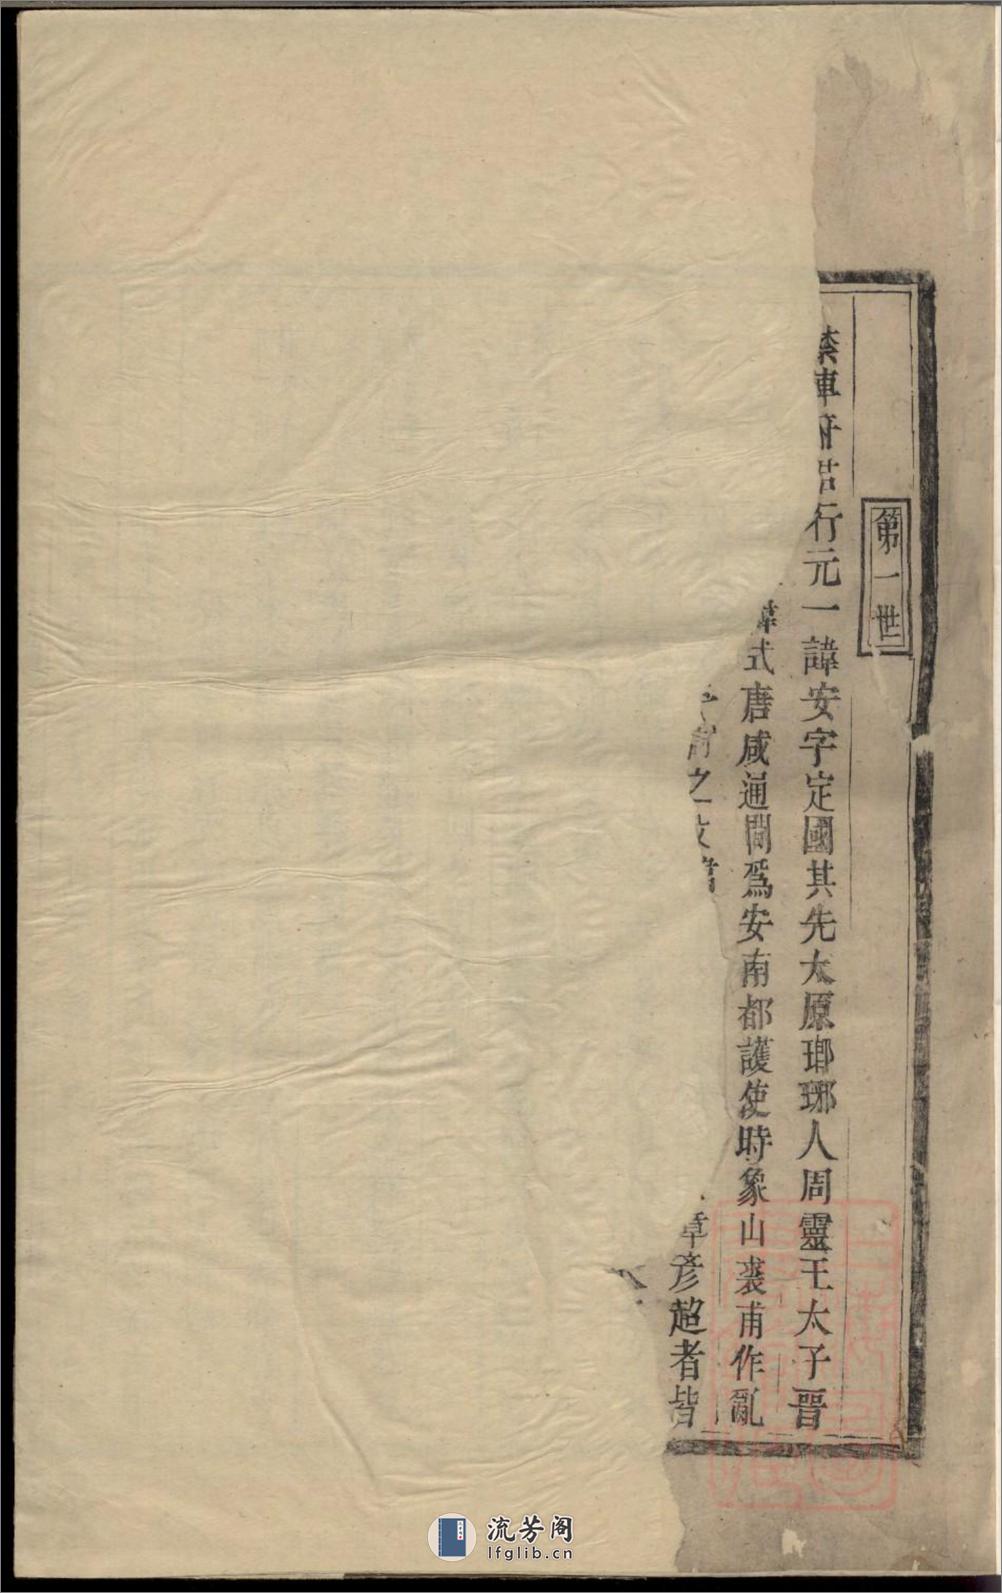 第一世
行元一諱安字定國其先太原瑯琊人周靈王太子晉
式唐咸通間爲安南都護使時象山裘甫作亂
之
彦超者皆
流芳阁
lfglib.cn